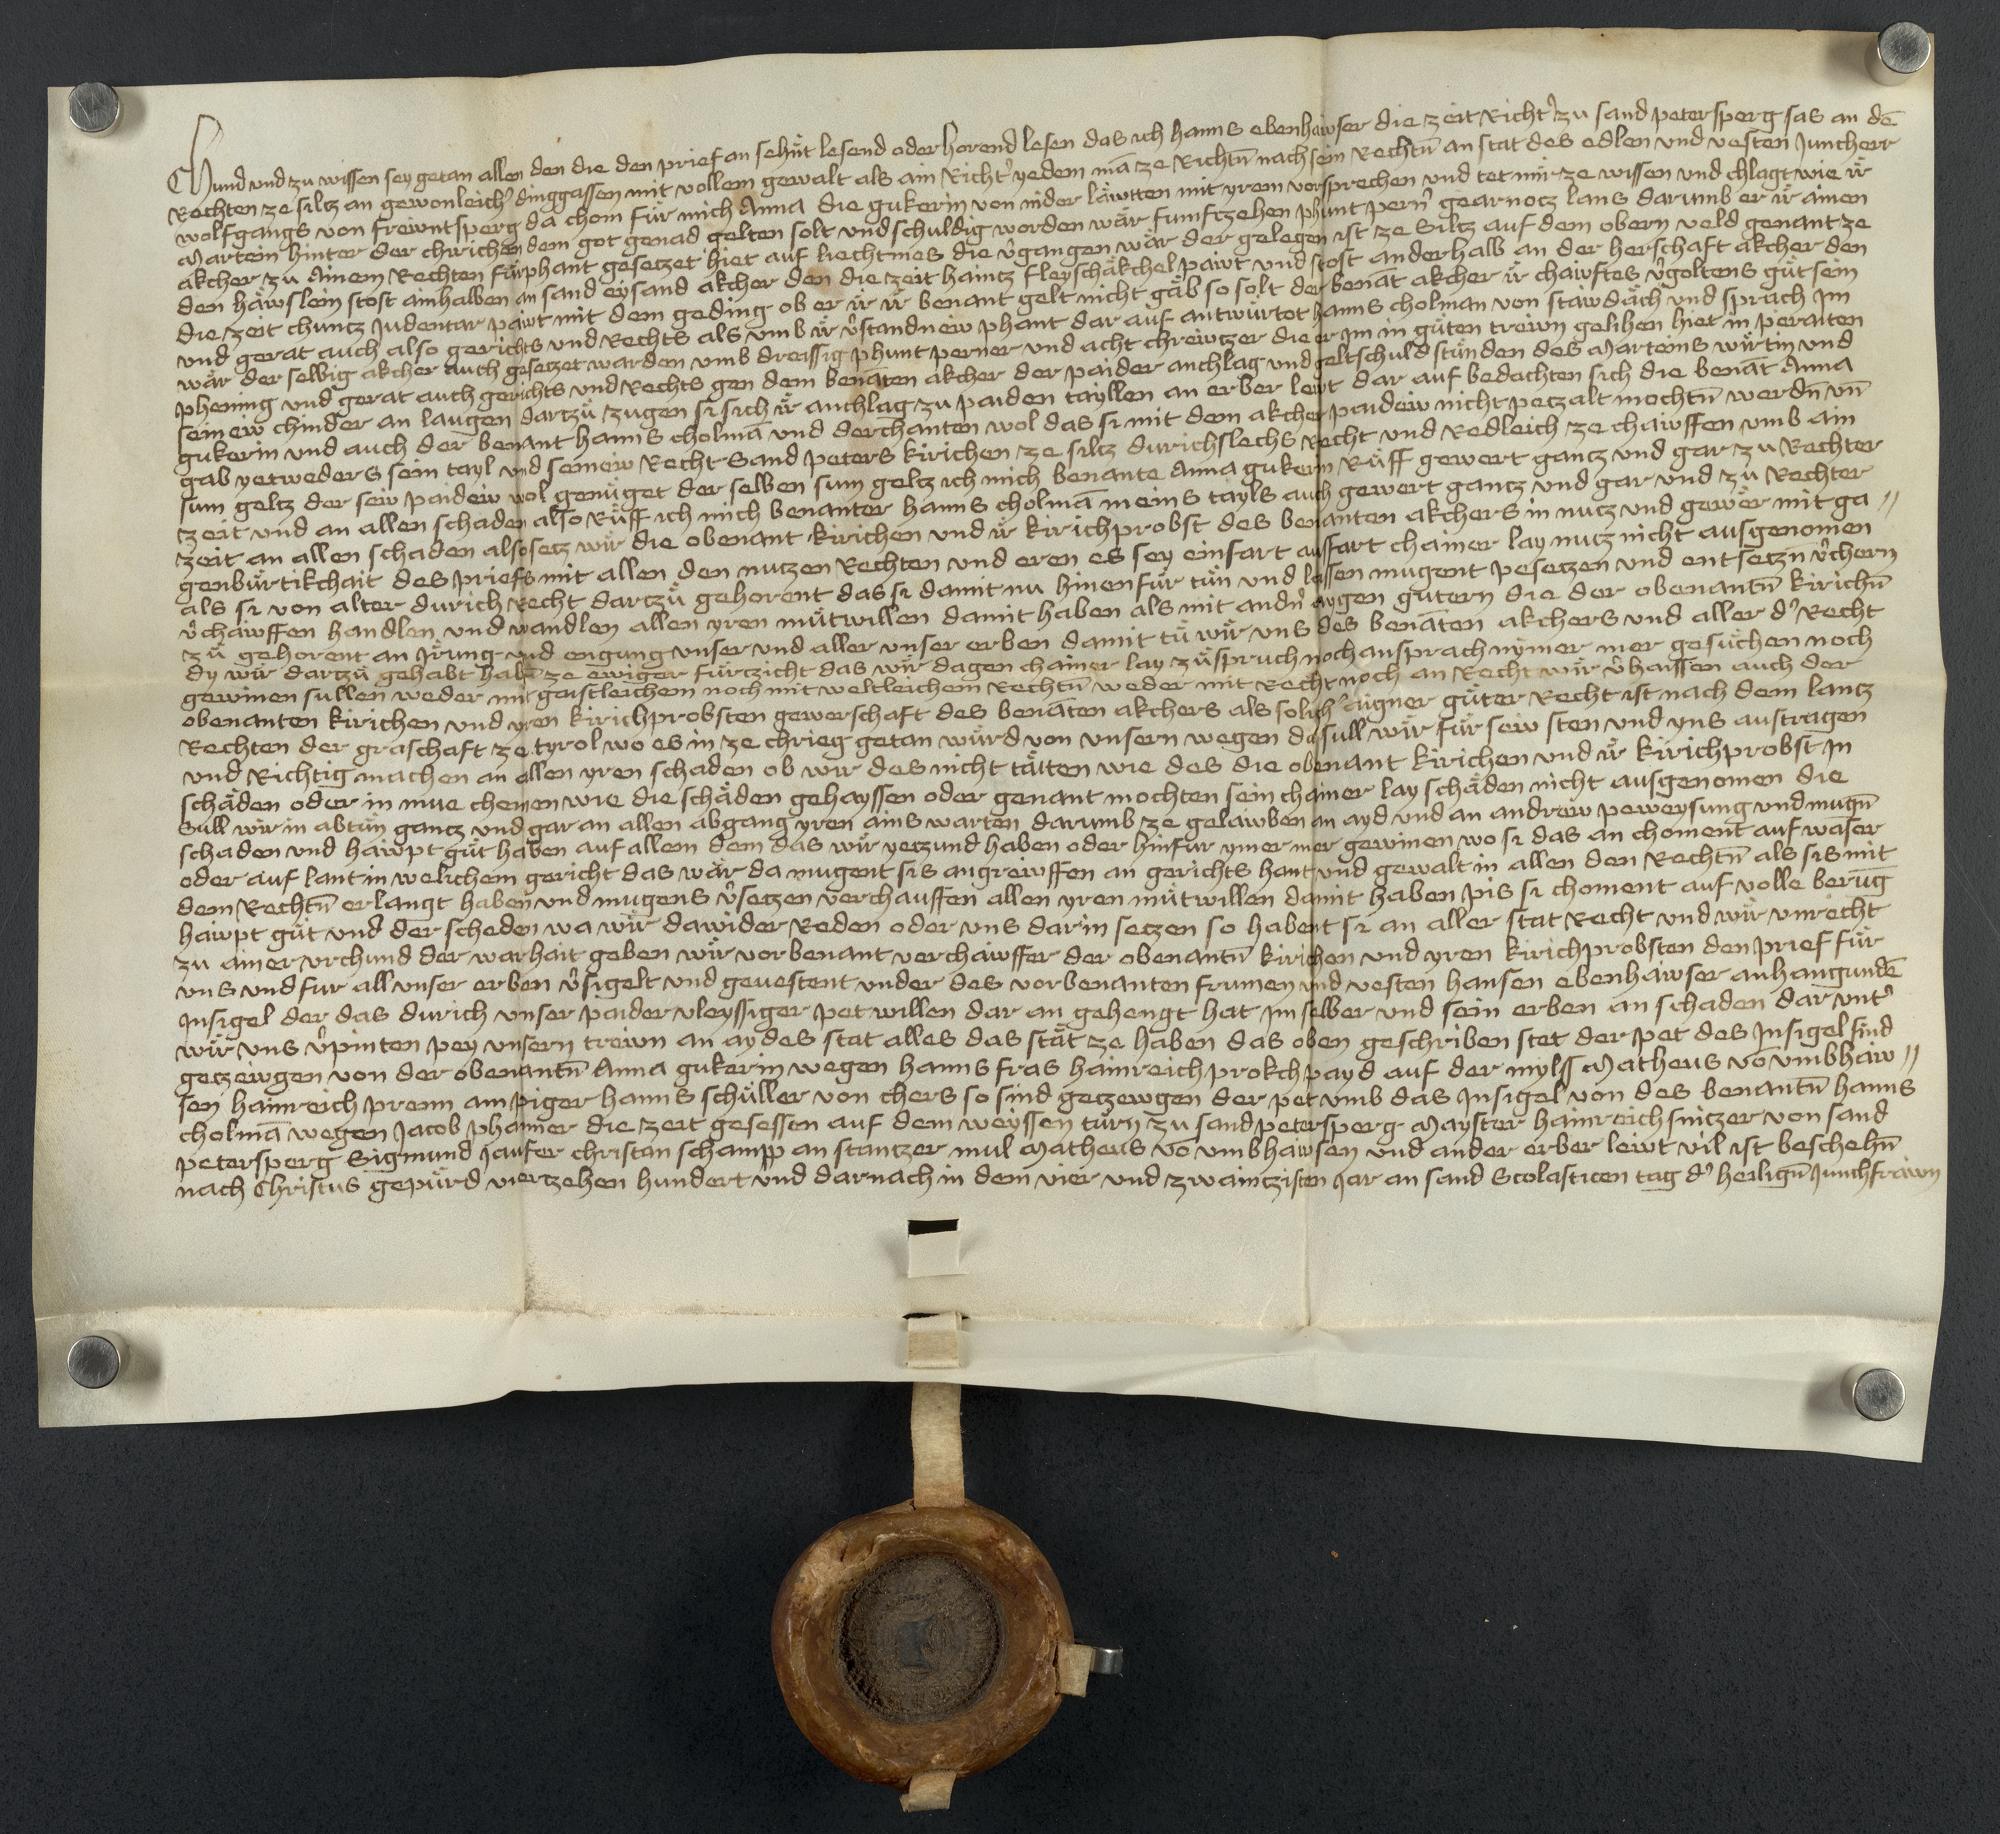 Chund und zu wissen sey getan allen den die den prief an sehn̄t lesend oder horend lesen das ich hanns ebenhäwser die zeit Richt᾽ zu sand petersperg sas an dē
Rechten ze siltz an gewonleich᾽ dinggassen mit vollem gewalt als ain Richt᾽ yedem mā ze Richtn̄ nach sein Rechtn̄ an stat des edlen und vesten Juncherr
wolfgangs von frewntsperg da chom für mich Anna die gukerin von nider läwtten mit yrem vorsprechen und tet mir ze wissen und chlagt wie ir
Martein hinter der chirichen dem got genad gelten solt und schuldig worden wär fumftzehen phunt pern᾽ gearnotz lans darumb er ir ainen
akcher zu ainem Rechten fürphant gesetzet hiet auf liechtmes die v᾽gangen wär der gelegen ist ze Siltz auf dem obern veld genant ze
den häwslein stost ainhalben an sand eysand akcher den die zeit haintz fleyschäkchel pawt und stost anderhalb an der herschaft akcher den
die zeit chuntz Judentar pawt mit dem geding ob er ir ir benant gelt nicht gäb so solt der benāt akcher ir chawftes v᾽goltens gūt sein
und gerat auch also gerichts und Rechts als umb ir v᾽standnew phant dar auf antwürtot hanns cholman von stawdäch und sprach Im
wär der selbig akcher auch gesetzet warden umb dreissig phunt perner und acht chrewtzer die er Im in gūten trewn gelihen hiet in peraiten
phening und gerat auch gerichts und Rechts gen dem benāten akcher der paider anchlag und geltschuld stūnden des Marteins wirtin und
seinew chinder an laugen dartzū zugen si sich ir anchlag zu paiden tayllen an erber lewt dar auf bedachten sich die benāt Anna
gukerin und auch der benant hanns cholmā und derchanten wol das si mit dem akcher paidew nicht petzalt mochtn̄ werdn̄ un̄
gab yetweders sein tayl und seinew Recht Sand peters kirichen ze siltz durichslechs Recht und Redleich ze chawffen umb ain
sum geltz der sew paidew wol genūget der selben sum geltz ich mich benante Anna gukerin Rūff gewert gantz und gar zu Rechter
tzeit und an allen schaden also Rūff ich mich benanter hanns cholmā meins tayls auch gewert gantz und gar und zu Rechter
zeit an allen schaden also setz wir die obenant kirichen und ir kirichprobst des benanten akchers in nutz und gewer mit ga〃
genbürtikchait des priefs mit allen den nutzen Rechten und eren es sey einfart ausfart chainer lay nutz nicht ausgenomen
als si von alter durich Recht dartzū gehorent das si damit nu hinenfür tūn und lassen mugent pesetzen und entsetzn v᾽chern
v᾽chawffen handlen und wandlen allen yren mūtwillen damit haben als mit andn᾽ aygen gūtern die der obenantn̄ kirichn̄
zū gehorent an Irung und engung unser und aller unser erben damit tū wir uns des benāten akchers und aller d᾽ Recht
dy wir dartzū gehabt habn̄ ze ewiger fürzicht das wir dagen chainer lay zūspruch noch ansprach nymer mer gesūchen noch
gewinen sullen weder mit gaistleichem noch mit weltleichem Rechtn̄ weder mit Recht noch an Recht wir v᾽haissen auch der
obenanten kirichen und yren kirichprobsten gewerschaft des benāten akchers als solich᾽ aigner gūter Recht ist nach dem lantz
Rechten der graschaft ze tyrol wo es in ze chrieg getan würd von unsern wegen da sull wir für sew sten und yns austragen
und Richtig machen an allen yren schaden ob wir des nicht tätten wie des die obenant kirichen und ir kirichprobst In
schäden oder in mue chemen wie die schäden gehayssen oder genant mochten sein chainer lay schäden nicht ausgenomen die
Sull wir in abtūn gantz und gar an allen abgang yren ains warten darumb ze gelawben an ayd und an andrew peweysung und mugn̄
schaden und hawpt gūt haben auf allem dem das wir yetzund haben oder hinfür ymer mer gewinen wo si das an choment auf waser
oder auf lant in welichem gericht das wär da mugent sis angrewffen an gerichts hant und gewalt in allen den Rechtn̄ als sis mit
dem Rechtn̄ erlangt haben und mugens v᾽setzen verchauffen allen yren mūtwillen damit haben pis si choment auf volle berūg
hawpt gūt und der scheden wa wir dawider Reden oder uns darin setzen so habent si an aller stat Recht und wir unrecht
zu ainer urchund der warhait geben wir vorbenant verchäwffer der obenantn̄ kirichen und yren kirichprobsten den prief für
uns und fur all unser erben v᾽sigelt und gevestent under des vorbenanten frumen und vesten hansen ebenhäwser anhangundē
Insigel der das durich unser paider vleyssiger pet willen dar an gehengt hat Im selber und sein erben an schaden dar unt᾽
wir uns v᾽pinten pey unsern trewn an aydes stat alles das stät ze haben das oben geschriben stet der pet des Insigel sind
getzewgen von der obenantn̄ Anna gukerin wegen hanns fras hainreich prokch payd auf der myls Matheus vō umbhäw〃
sen hainreich prenn am piger hanns schüller von chers so sind getzewgen der pet umb das Insigel von des benantn̄ hanns
cholmā wegen Jacob phainer die zeit gesessen auf dem weyssen tūrn zu sand petersperg Mayster hainreich snitzer von sand
petersperg Sigmund Jaufer christan schampp an stantzer mul Matheus vō umbhäwsen und ander erber lewt vil ist beschehn̄
nach Christus gepürd viertzehen hundert und darnach in dem vier und zwaintzisten Jar an sand Scolasticen tag d᾽ heilign̄ Junchfrawn